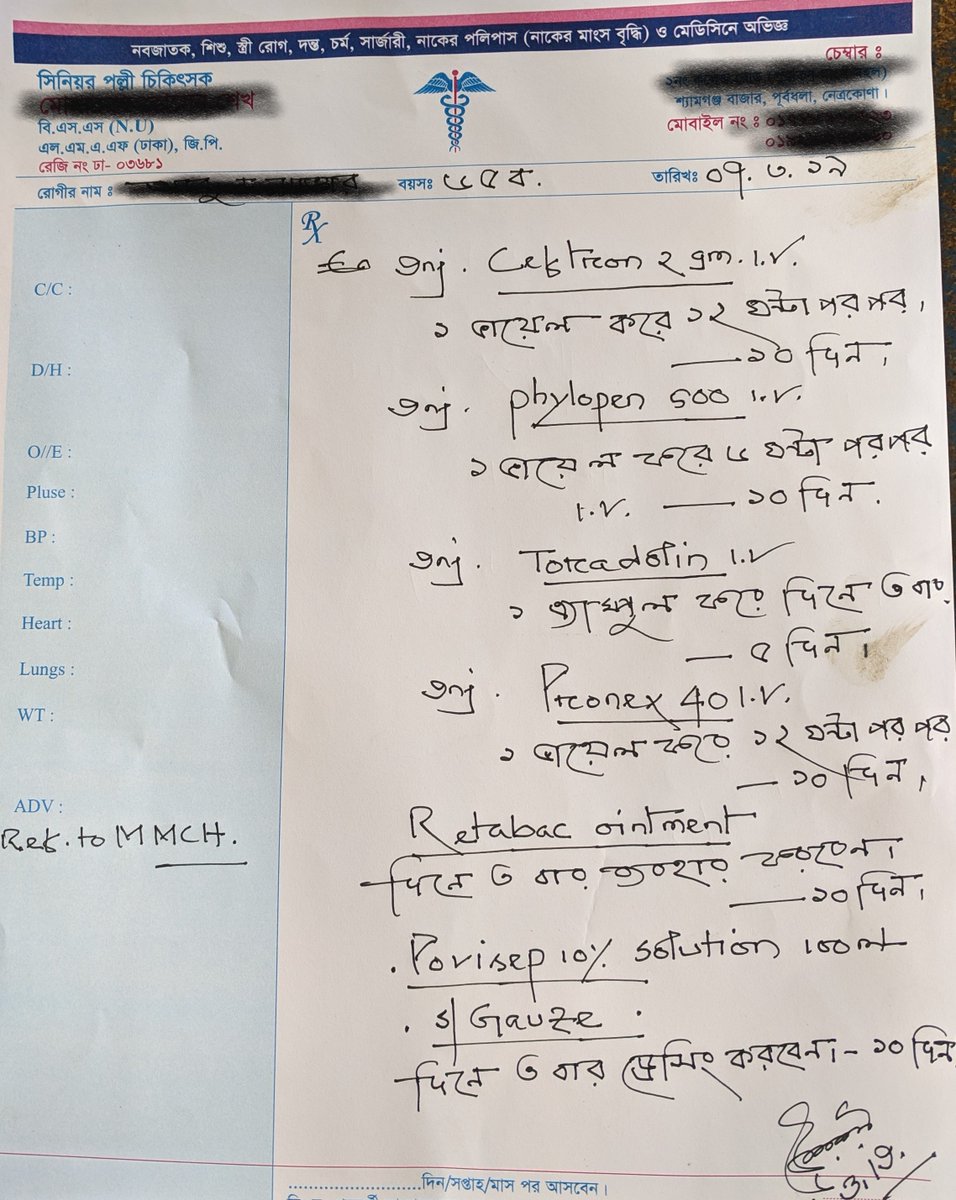 নবজাতক, শিশু, স্ত্রী রোগ, দন্ত, চর্ম, সার্জারী, নাকের পলিপাস (নাকের মাংস বৃদ্ধি) ও মেডিসিনে অভিজ্ঞ
সিনিয়র পল্লী চিকিৎসক
বি.এস.এস (N.U)
এল.এম.এ.এফ (ঢাকা), জি.পি.
রেজি নং ঢা- ০৩৬৮১
চেম্বার ঃ
শ্যামগঞ্জ বাজার, পূর্বধলা, নেত্রকোণা।
মোবাইল নং ঃ
রোগীর নাম ঃ বয়সঃ ৬৫ ব. তারিখঃ ০৭. ৩. ১৯
Rx
C/C :
D/H :
O//E :
Pluse :
BP :
Temp :
Heart :
Lungs :
WT :
ADV :
Ref. to MMCH.
Inj. Ceftron ২ gm. I.V.
১ ভায়েল করে ১২ ঘন্টা পর পর।
— ১০ দিন।
Inj. phylopen 500 I.V.
১ ভায়েল করে ৬ ঘন্টা পরপর
I.V. — ১০ দিন.
Inj. Torcadolin I.V
১ এ্যাম্পুল করে দিনে ৩ বার
— ৫ দিন।
Inj. 40 I.V.
১ ভায়েল করে ১২ ঘন্টা পর পর
— ১০ দিন।
Retabac ointment
দিনে ৩ বার ব্যবহার করবেন।
— ১০ দিন।
. Povisep 10% solution 100ml
. s/ Gauze.
দিনে ৩ বার ড্রেসিং করবেন। - ১০ দিন
........................দিন/সপ্তাহ/মাস পর আসবেন।